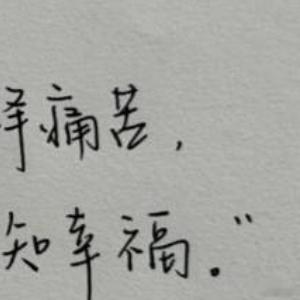 痛苦，
知幸福。”